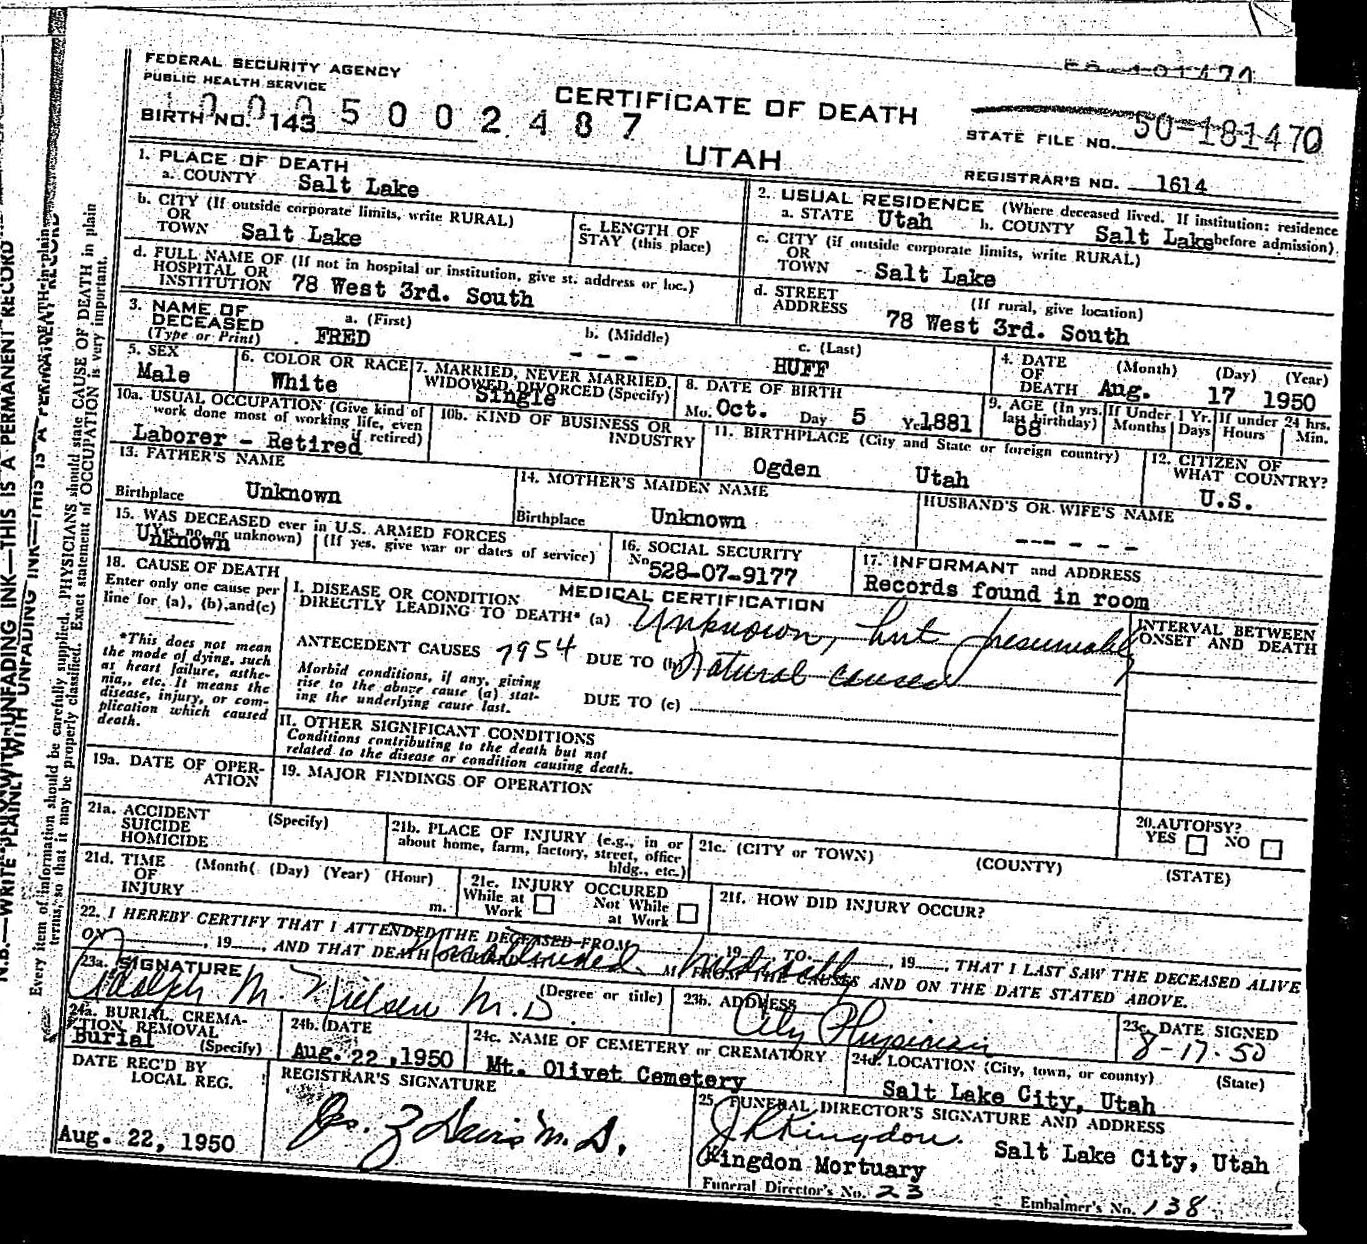 50-181470
FEDERAL SECURITY AGENCY
PUBLIC HEALTH SERVICE
CERTIFICATE OF DEATH
BIRTH NO. 143 5 0 0 2 4 8 7
STATE FILE NO. 50-181470
UTAH
REGISTRAR'S NO. 1614
1. PLACE OF DEATH
a. COUNTY Salt Lake
b. CITY (If outside corporate limits, write RURAL)
OR
TOWN Salt Lake
c. LENGTH OF
STAY (this place)
d. FULL NAME OF (If not in hospital or institution, give st. address or loc.)
HOSPITAL OR
INSTITUTION 78 West 3rd. South
2. USUAL RESIDENCE (Where deceased lived. If institution: residence
a. STATE Utah b. COUNTY Salt Lake before admission)
c. CITY (if outside corporate limits, write RURAL)
OR
TOWN - Salt Lake
d. STREET (If rural, give location)
ADDRESS 78 West 3rd. South
3. NAME OF DECEASED (Type or Print)
a. (First) FRED
b. (Middle) - - -
c. (Last) HUFF
4. DATE OF DEATH (Month) (Day) (Year)
Aug. 17 1950
5. SEX
Male
6. COLOR OR RACE
White
7. MARRIED, NEVER MARRIED,
WIDOWED, DIVORCED (Specify)
Single
8. DATE OF BIRTH
Mo. Oct. Day 5 Yr. 1881
9. AGE (In yrs. last birthday) 68
If Under 1 Yr. Months Days
If under 24 hrs. Hours Min.
10a. USUAL OCCUPATION (Give kind of
work done most of working life, even
if retired)
Laborer - Retired
10b. KIND OF BUSINESS OR
INDUSTRY
11. BIRTHPLACE (City and State or foreign country)
Ogden Utah
12. CITIZEN OF
WHAT COUNTRY?
U.S.
13. FATHER'S NAME
Birthplace Unknown
14. MOTHER'S MAIDEN NAME
Birthplace Unknown
HUSBAND'S OR WIFE'S NAME
- - - - - -
15. WAS DECEASED ever in U.S. ARMED FORCES
(Yes, no, or unknown) (If yes, give war or dates of service)
Unknown
16. SOCIAL SECURITY
No 528-07-9177
17. INFORMANT and ADDRESS
Records found in room
18. CAUSE OF DEATH
Enter only one cause per
line for (a), (b), and (c)
*This does not mean
the mode of dying, such
as heart failure, asthe-
nia,, etc. It means the
disease, injury, or com-
plication which caused
death.
MEDICAL CERTIFICATION
I. DISEASE OR CONDITION
DIRECTLY LEADING TO DEATH* (a) Unknown, but presumably
ANTECEDENT CAUSES 7954 DUE TO (b) Natural causes
Morbid conditions, if any, giving
rise to the above cause (a) stat-
ing the underlying cause last.
DUE TO (c)
INTERVAL BETWEEN
ONSET AND DEATH
II. OTHER SIGNIFICANT CONDITIONS
Conditions contributing to the death but not
related to the disease or condition causing death.
19a. DATE OF OPER-
ATION
19. MAJOR FINDINGS OF OPERATION
20. AUTOPSY?
YES NO
21a. ACCIDENT (Specify)
SUICIDE
HOMICIDE
21b. PLACE OF INJURY (e.g., in or
about home, farm, factory, street, office
bldg., etc.)
21c. (CITY or TOWN) (COUNTY) (STATE)
21d. TIME (Month( (Day) (Year) (Hour)
OF
INJURY m.
21e. INJURY OCCURED
While at Work Not While at Work
21f. HOW DID INJURY OCCUR?
22. I HEREBY CERTIFY THAT I ATTENDED THE DECEASED FROM 19 TO , 19 , THAT I LAST SAW THE DECEASED ALIVE
ON , 19 , AND THAT DEATH M FROM THE CAUSES AND ON THE DATE STATED ABOVE.
Unattended medically
23a. SIGNATURE (Degree or title)
Adolph M. Nielsen M.D.
23b. ADDRESS
City Physician
23c. DATE SIGNED
8-17-50
24a. BURIAL, CREMA-
TION REMOVAL
Burial (Specify)
24b. DATE
Aug. 22, 1950
24c. NAME OF CEMETERY or CREMATORY
Mt. Olivet Cemetery
24d. LOCATION (City, town, or county) (State)
Salt Lake City, Utah
DATE REC'D BY
LOCAL REG.
Aug. 22, 1950
REGISTRAR'S SIGNATURE
Jos. Z Davis M.D.
25. FUNERAL DIRECTOR'S SIGNATURE AND ADDRESS
J R Kingdon.
Kingdon Mortuary Salt Lake City, Utah
Funeral Director's No. 23
Embalmer's No. 138
N.B.—WRITE PLAINLY WITH UNFADING INK—THIS IS A PERMANENT RECORD
Every item of information should be carefully supplied. PHYSICIANS should state CAUSE OF DEATH in plain
terms, so that it may be properly classified. Exact statement of OCCUPATION is very important.